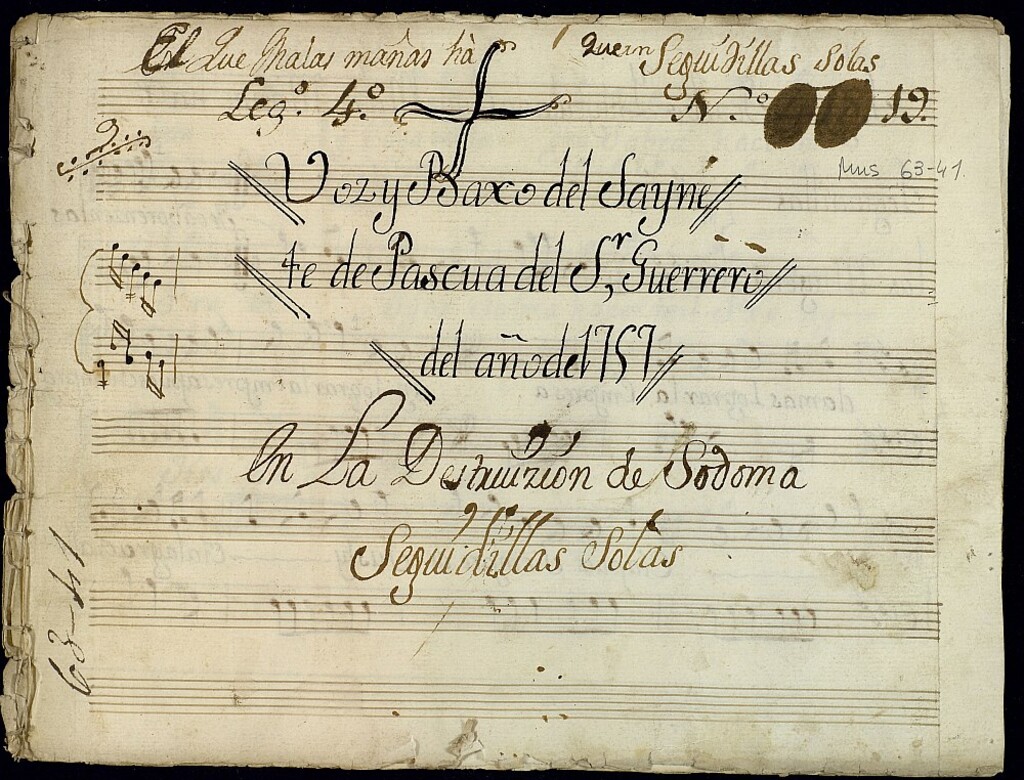 El Que Malas mañas hà Seguidillas Solas
Leg.º 4.º N.º 19.
Mus 63-41
Voz y Baxo del Sayne
te de Pascua del S.r Guerrero
del año de 1757
En La Destruizion de Sodoma
Seguidillas Solas
63-41